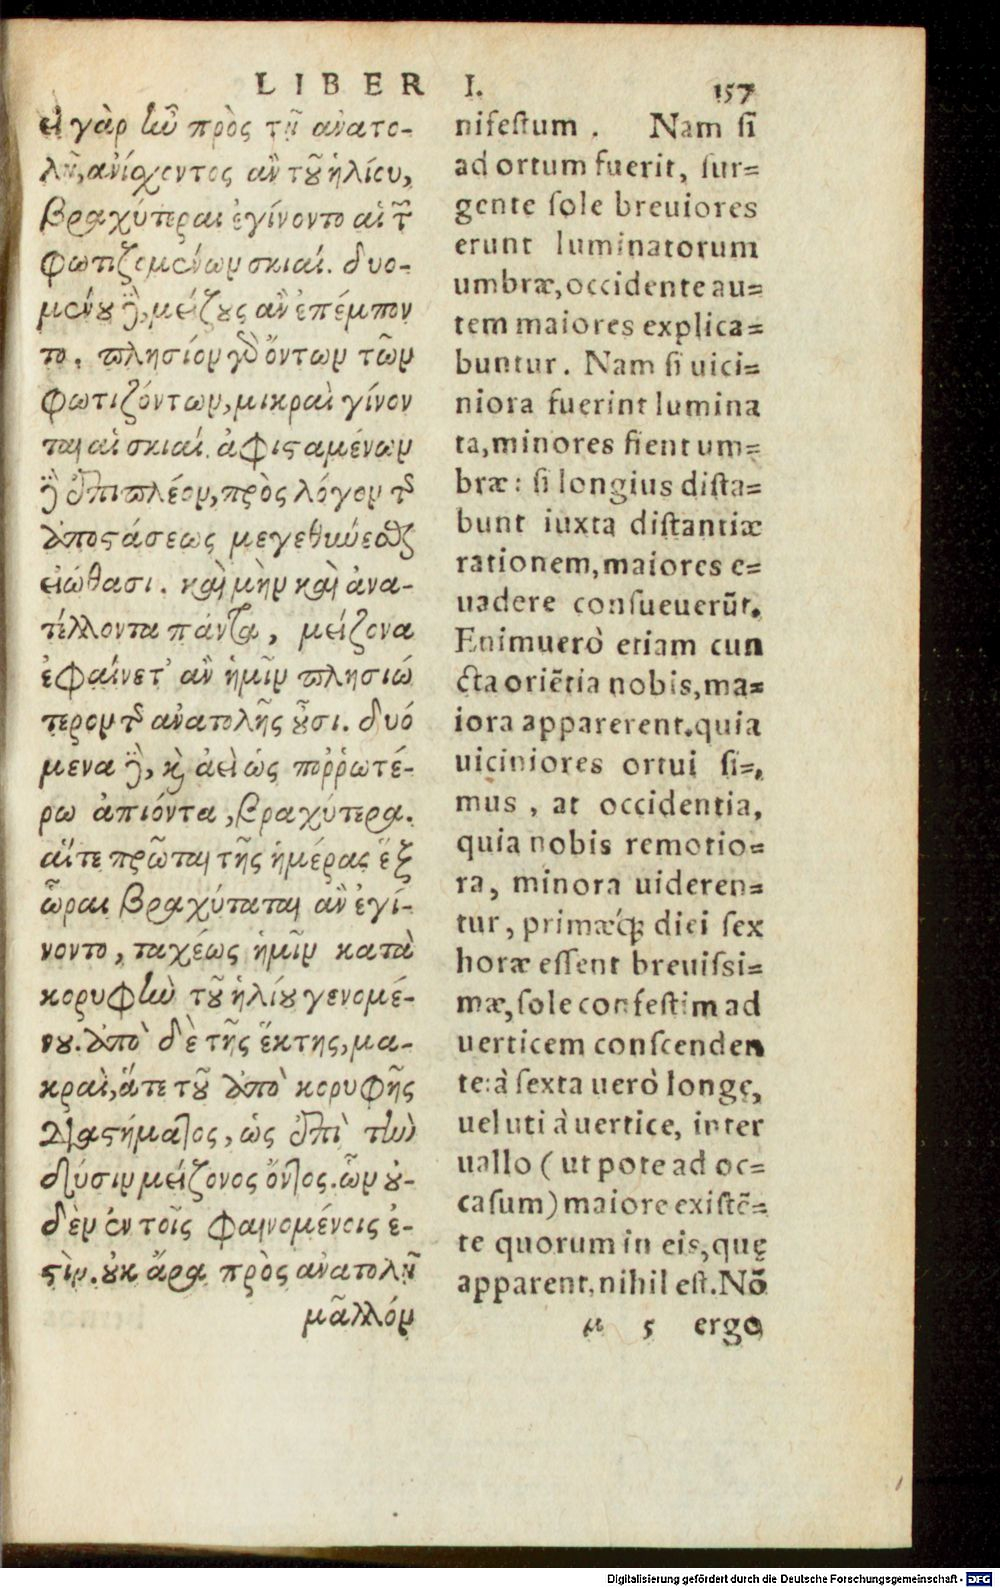 LIBER I. 157
εἰ γὰρ ἦν πρὸς τῇ ἀνατο-
λῇ, ἀνίσχοντος ἂν τοῦ ἡλίου,
βραχύτεραι ἐγίνοντο αἱ τῶν
φωτιζομένων σκιαί. δυο-
μένου δὲ, μείζους ἂν ἐπέμπον
το. πλησίον γὰρ ὄντων τῶν
φωτιζόντων, μικραὶ γίνον
ται αἱ σκιαί. ἀφισαμένων
δὲ ἐπιπλέον, πρὸς λόγον τῆς
ἀποστάσεως μεγεθύνεσθαι
εἰώθασι. καὶ μὴν καὶ ἀνα-
τέλλοντα πάντα, μείζονα
ἐφαίνετ' ἂν ἡμῖν πλησιώ
τερον τῆς ἀνατολῆς οὖσι. δυό
μενα δὲ, καὶ ἀεὶ ὡς πορρωτέ-
ρω ἀπιόντα, βραχύτερα.
αἵτε πρῶται τῆς ἡμέρας ἓξ
ὧραι βραχύταται ἂν ἐγί-
νοντο, ταχέως ἡμῖν κατὰ
κορυφὴν τοῦ ἡλίου γενομέ-
νου. ἀπὸ δὲ τῆς ἕκτης, μα-
κραὶ, ἅτε τοῦ ἀπὸ κορυφῆς
διαστήματος, ὡς ἐπὶ τὴν
δύσιν μείζονος ὄντος. ὧν οὐ-
δὲν ἐν τοῖς φαινομένοις ἐ-
στὶν. οὐκ ἄρα πρὸς ἀνατολῇ
μᾶλλόν
nifestum. Nam si
ad ortum fuerit, sur=
gente sole breuiores
erunt luminatorum
umbræ, occidente au=
tem maiores explica=
buntur. Nam si uici=
niora fuerint lumina
ta, minores fient um=
bræ: si longius dista=
bunt iuxta distantiæ
rationem, maiores e=
uadere consueuerūt.
Enimuerò etiam cun
cta oriētia nobis, ma=
iora apparerent. quia
uiciniores ortui si=
mus, at occidentia,
quia nobis remotio=
ra, minora uideren=
tur, primæq́; diei sex
horæ essent breuissi=
mæ, sole confestim ad
uerticem conscenden
te: à sexta uerò longę,
ueluti à uertice, inter
uallo (ut pote ad oc=
casum) maiore existē=
te quorum in eis, quę
apparent, nihil est. Nō
μ 5 ergo
Digitalisierung gefördert durch die Deutsche Forschungsgemeinschaft - DFG